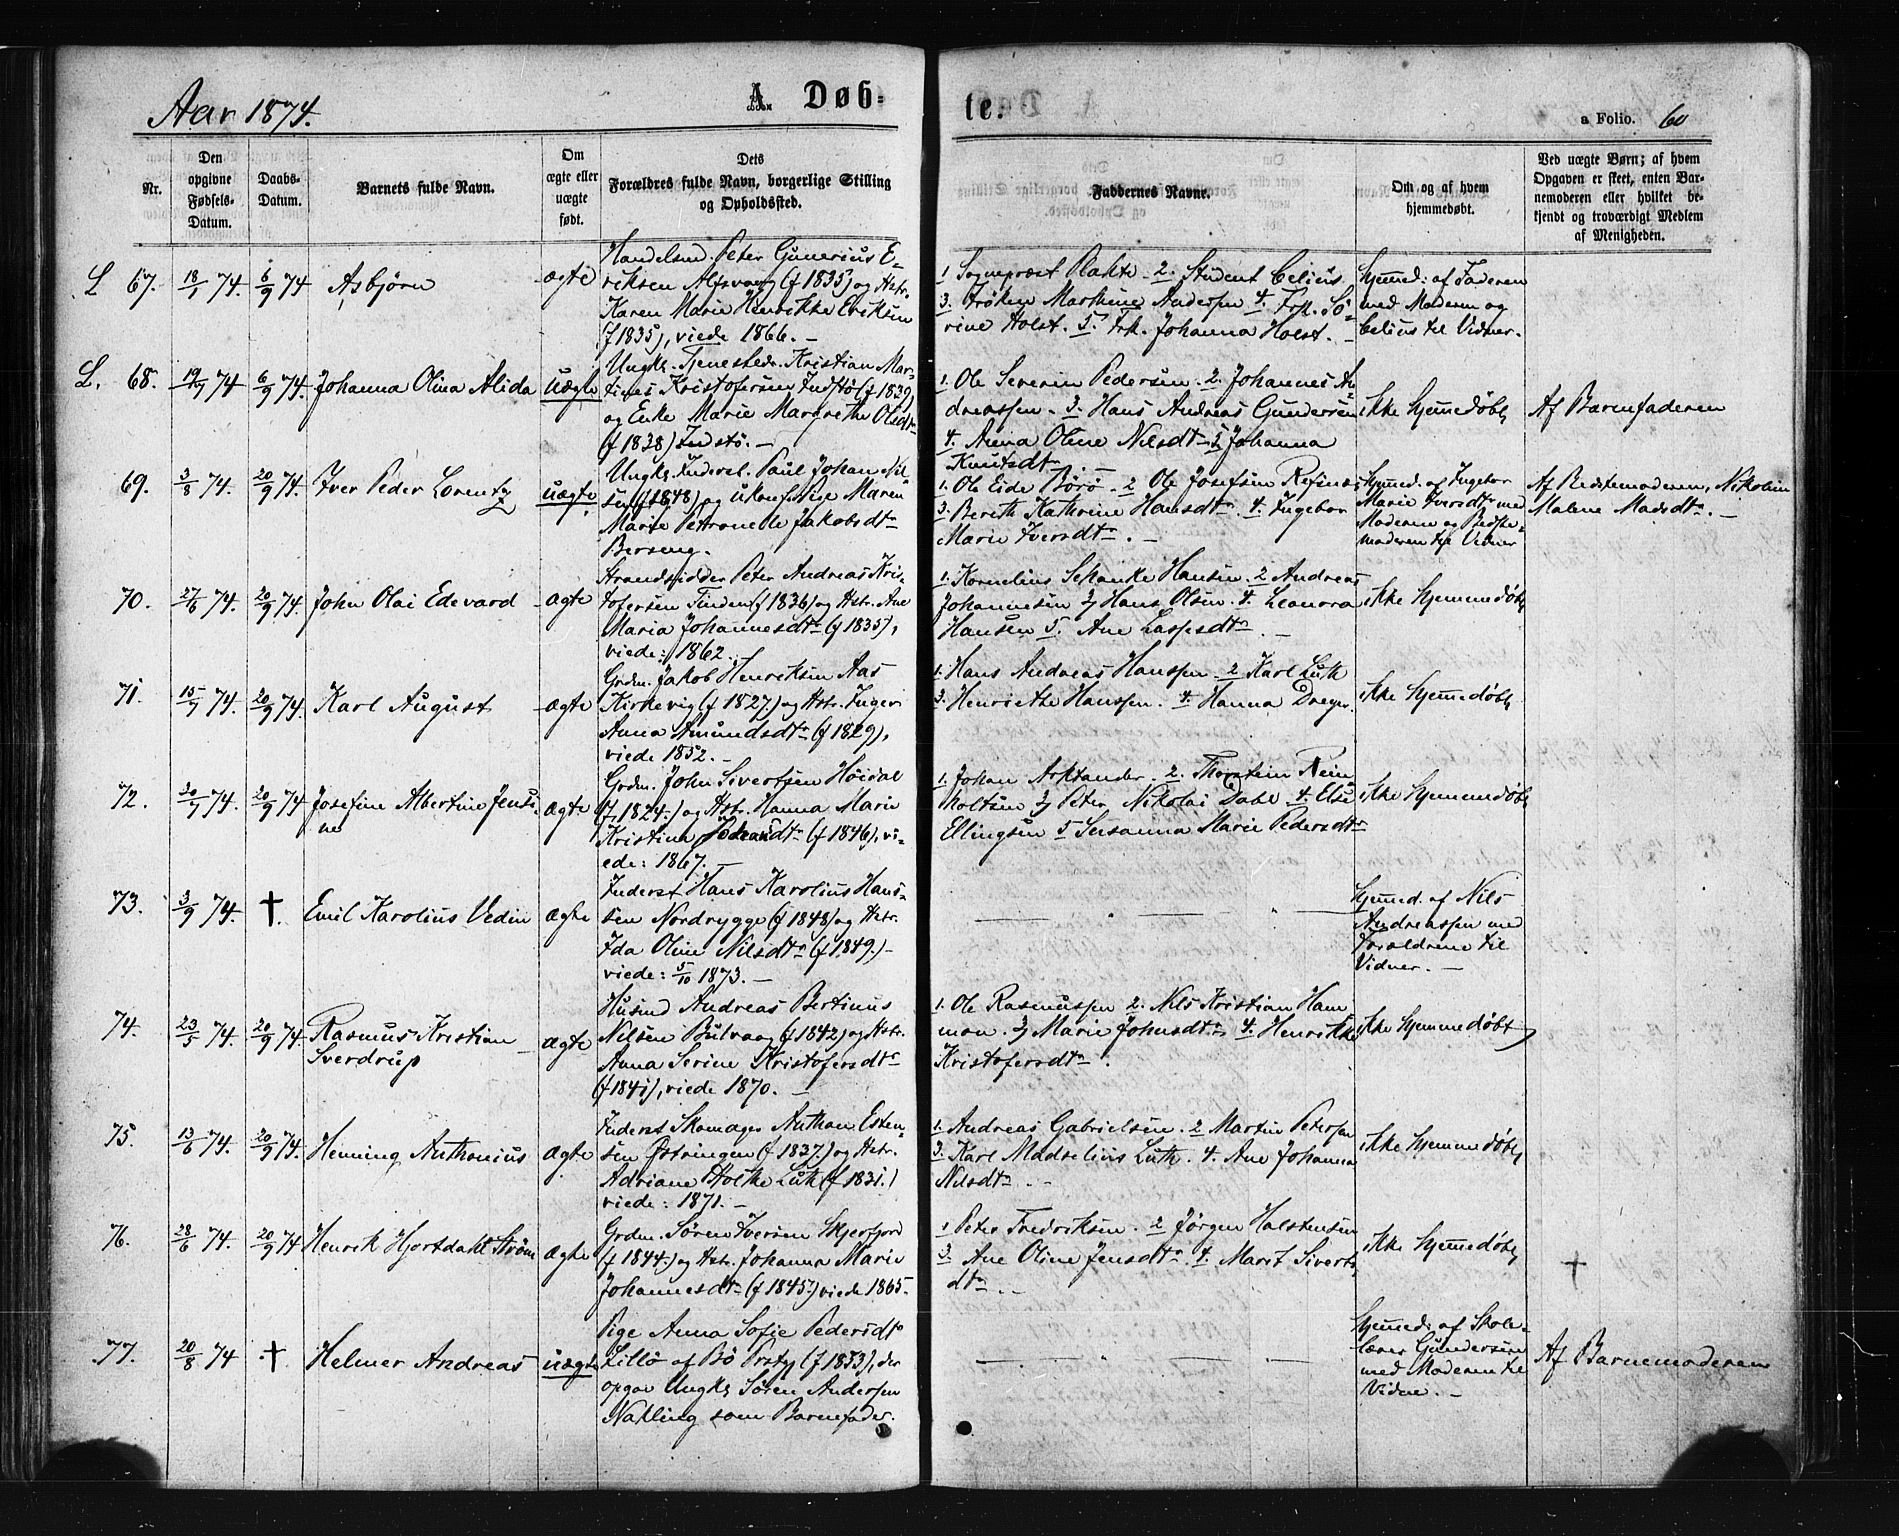 Aar 1874.
A. Døb=
te.
a Folio. 60
Nr.
Den opgivne Fødsels-Datum.
Daabs-Datum.
Barnets fulde Navn.
Om ægte eller uægte født.
Dets Forældres fulde Navn, borgerlige Stilling og Opholdssted.
Faddernes Navne.
Om og af hvem hjemmedøbt.
Ved uægte Børn; af hvem Opgaven er skeet, enten Barnemoderen eller hvilket bekjendt og troværdigt Medlem af Menigheden.
L 67. 18/1 74. 6/9 74 Asbjørn ægte
Handelsmd. Peter Gunerius E-
riksen Alfsvaag (f 1835) og Hstr.
Karen Marie Henrikke Eriksen
(f 1835), viede 1866. -
1 Sognepræst Plahte 2. Student Celius
3. Frøken Marthine Andersen 4. Frk. Sö-
rine Holst. 5. Frk. Johanna Holst. -
Hjemmed: af Faderen
med Moderen og
Celius til Vidner.
L. 68. 19/7 74 6/9 74. Johanna Olina Alida uægte
Ungk. Tjenestedr. Kristian Mar-
tines Kristofersen Indstö (f 1839)
og Enke Marie Margrethe Olsdtr
(f 1838) Indstö. -
1. Ole Severin Pedersen. 2. Johannes An
dreassen. 3. Hans Andreas Gundersen
4. Anna Oline Nilsdtr 5 Johanna
Knutsdtr
ikke hjemmedøbt
Af Barnefaderen
69. 3/8 74. 20/9 74. Iver Peder Lorentz uægte
Ungk. Inderst. Paul Johan Nil
sen (f 1848) og ukonf. Pige Maren
Marie Petronele Jakobsdtr
Berseng.
1. Ole Eide Börö. 2 Ole Josefsen Refsnes
3. Bereth Kathrine Hansdtr. 4. Ingebor
Marie Iversdtr. -
Hjemmed. af Ingebor
Marie Iversdtr med
Moderen og Bedste-
moderen til Vidner
Af Bedstemoderen, Nikolina
Malene Madsdtr. -
70. 27/6 74. 20/9 74. John Olai Edevard ægte
Strandsidder Peter Andreas Kris-
tofersen Tinden (f 1836) og Hstr. Ane
Maria Johannesdtr (f 1835),
viede: 1862.
1. Kornelius Schanke Hansen. 2 Andreas
Johannesen 3 Hans Olsen. 4. Leonora
Hansen 5. Ane Laspsdtr. -
ikke hjemmedøbt
71. 15/7 74. 20/9 74. Karl August ægte
Grdm. Jakob Henriksen Aas
Kirkevig (f 1827) og Hstr. Inger
Anna Amundsdtr (f 1829),
viede 1852. -
1. Hans Andreas Hanssen. 2 Karl Luth
3. Henriethe Hanssen. 4. Hanna Dreyer.
ikke hjemmedøbt
72. 20/7 74. 20/9 74 Josefine Albertine Jensi-
ne ægte
Grdm. John Sivertsen Höidal
(f 1824) og Hstr. Hanna Marie
Kristina dtr (f 1846), vi-
ede: 1867.
1. Johan Arktander. 2. Thorstein Rein
holtsen 3 Peter Nikolai Dahl 4. Else
Ellingsen 5 Susanna Marie Pedersdtr
ikke hjemmedøbt
73. 3/9 74. †. Emil Karolius Vedin ægte
Inderst Hans Karolius Hans-
sen Nordrygge (f 1848) og Hstr.
Ida Oline Nilsdtr (f 1849.)
viede: 5/10 1873. -
Hjemmed. af Nils
Andreassen med
Forældrene til
Vidner. -
74. 23/5 74. 20/9 74 Rasmus Kristian
Sverdrup ægte
Husmd Andreas Bertinus
Nilsen Bulvaag (f 1842) og Hstr.
Anna Serine Kristofersdtr
(f 1841), viede 1870. -
1. Ole Rasmussen 2. Nils Kristian Ham
mon. 3 Marie Johnsdtr 4. Henrikke
Kristofersdtr.
ikke hjemmedøbt
75. 13/6 74. 20/9 74. Henning Anthonius ægte
Inderst Skomager Anthon Esten-
sen Östringen (f 1837) og Hstr.
Adriane Holthe Luth (f 1831.)
viede: 1871. -
1. Andreas Gabrielsen. 2 Martin Petersen
3. Karl Madselius Luth. 4. Ane Johanna
Nilsdtr. -
ikke hjemmedøbt
76. 28/6 74. 20/9 74 Henrik Hjortdahl Strøm ægte
Grdm. Sören Iversen Skjerfjord
(f 1844.) og Hstr. Johanna Marie
Johannesdtr (f 1845.) viede 1865.
1 Peter Fredriksen. 2 Jörgen Holstensen
3. Ane Oline Jensdtr. 4. Marit Siverts
dtr. -
ikke hjemmedøbt
†
77. 20/8 74 †. Helmer Andreas uægte
Pige Anna Sofie Pedersdtr
Lillö af Bö Prstgj (f 1853), der
opgav Ungk. Sören Andersen
Nakling som Barnefader.
Hjemmed: af Skole-
lærer Gundersen
med Moderen til
Vidne. -
Af Barnemoderen